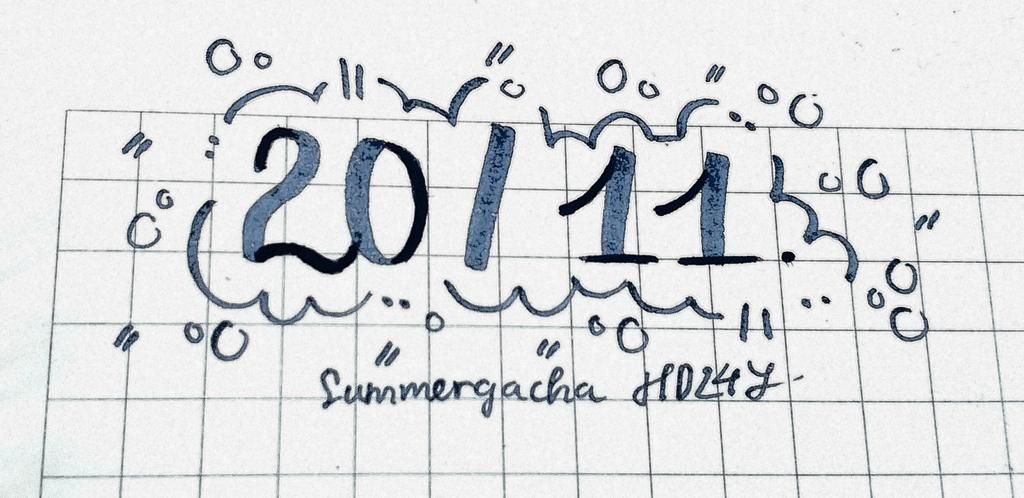 20/11.
Summergacha HD24Y